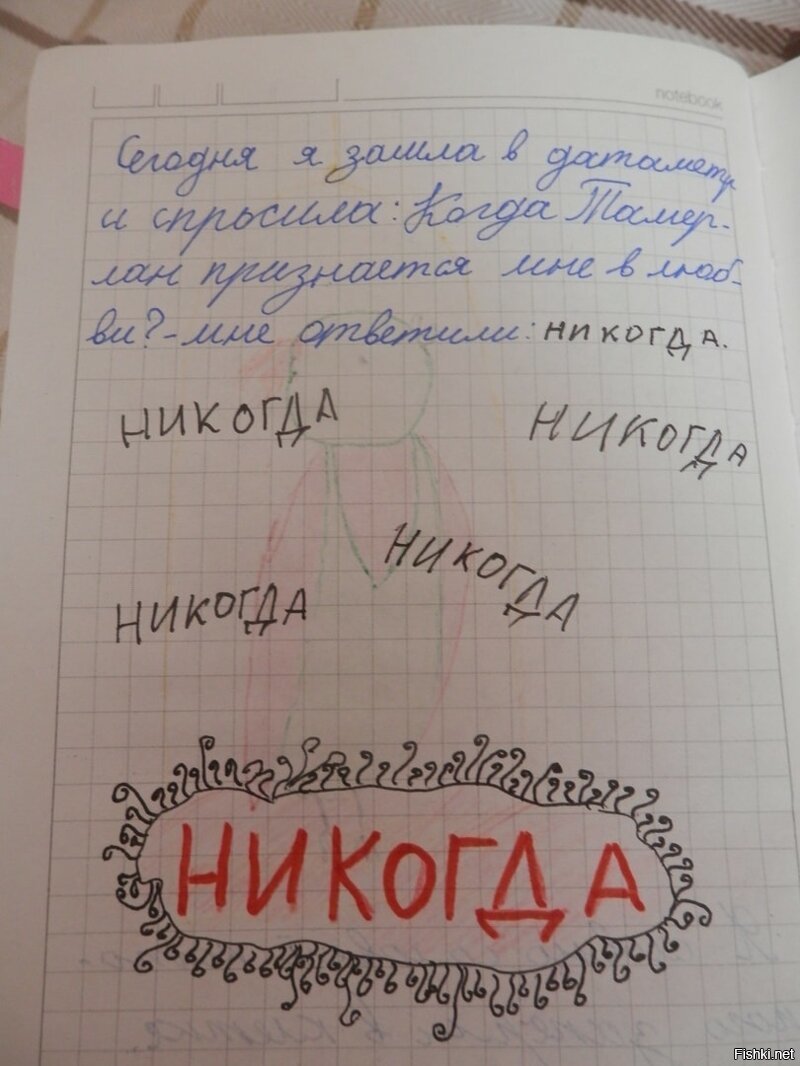 notebook
Сегодня я зашла в датаметр
и спросила: Когда Тамер-
лан признается мне в люб-
ви? - мне ответили: никогда.
НИКОГДА
НИКОГДА
НИКОГДА
НИКОГДА
НИКОГДА
Fishki.net